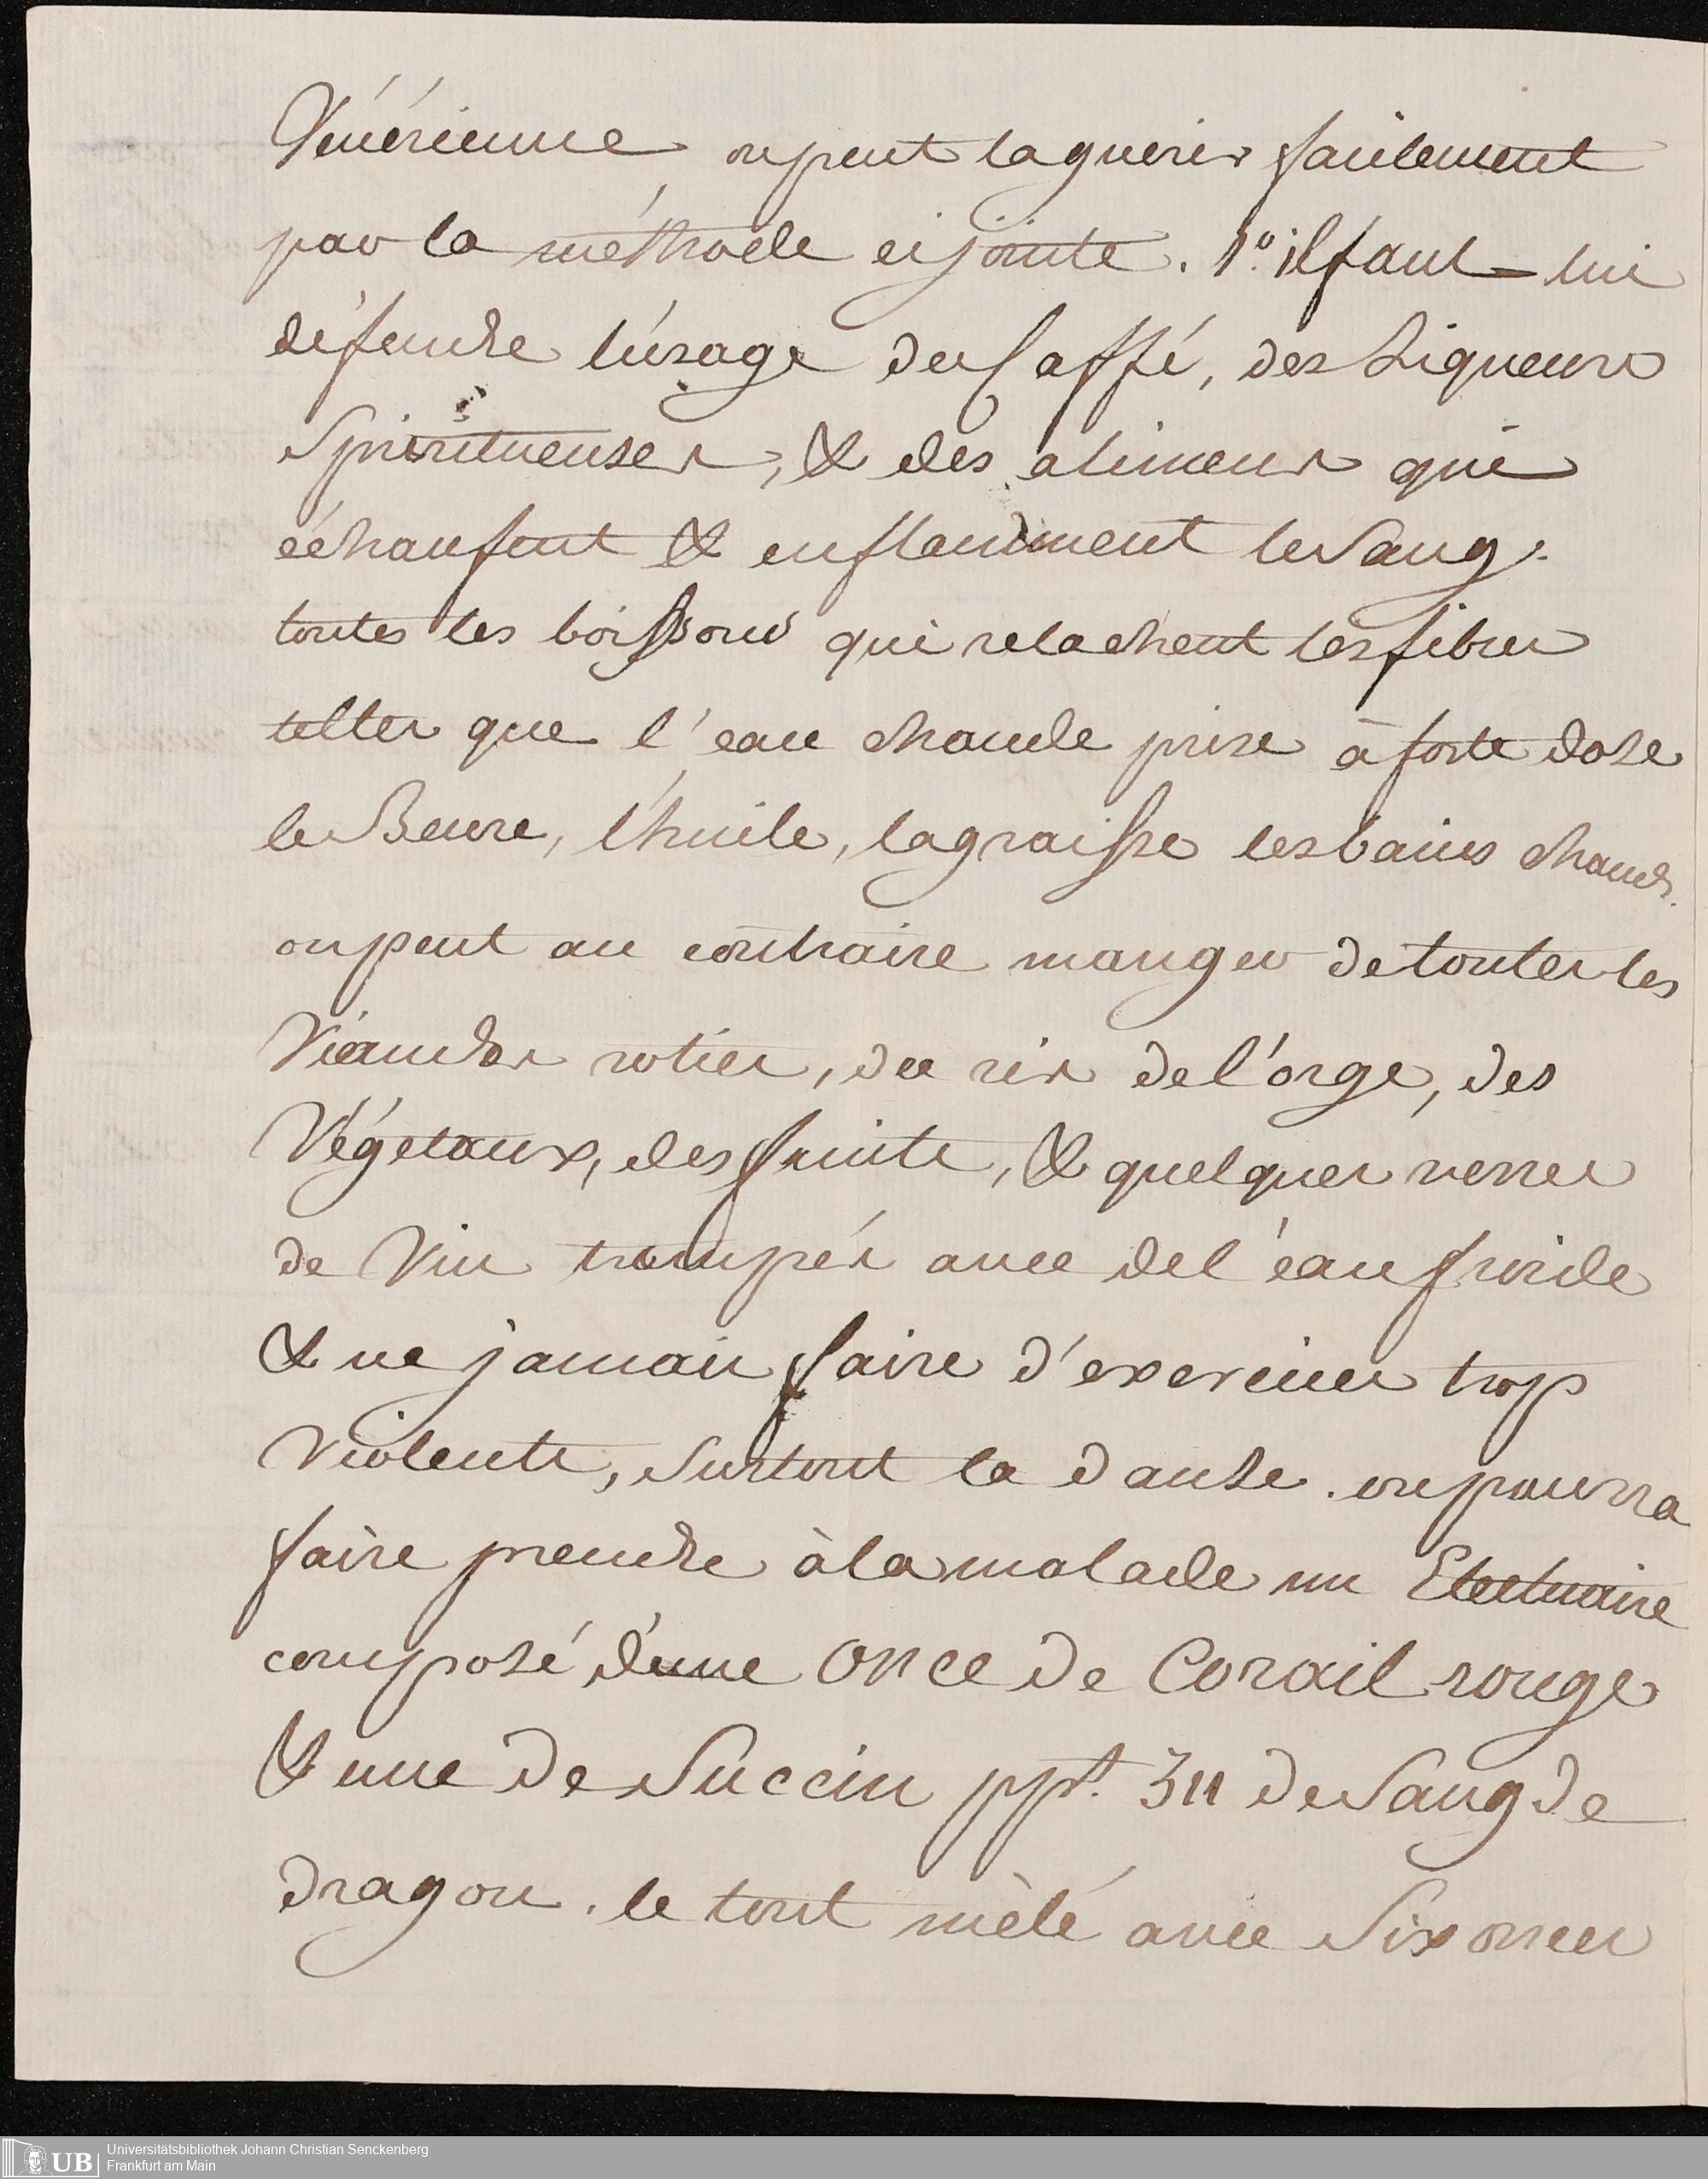 Vénérienne, on peut la guérir facilement
par la méthode ci jointe. 1.º il faut lui
défendre l'úsage du Caffé, des Liqueurs
Spiritueuses, & des alimens qui
échaufent & enflamment le Sang.
toutes les boissons qui relachent les fibres
telles que l'eau chaude prise à forte dose
le Beure, l'huile, la graisse les bains chauds.
on peut au contraire manger de toutes les
Viandes roties, du ris de l'orge, des
Végetaux, des fruits, & quelques verres
de Vin trempés avec de l'eau froide
& ne jamais faire d'exercices trop
violents, surtout la danse. on pourra
faire prendre à la malade un Electuaire
composé d'une Once de Corail rouge
& une de Succin ppt. ʒıı de Sang de
dragon. le tout mèlé avec Six onces
Universitätsbibliothek Johann Christian Senckenberg
Frankfurt am Main
UB